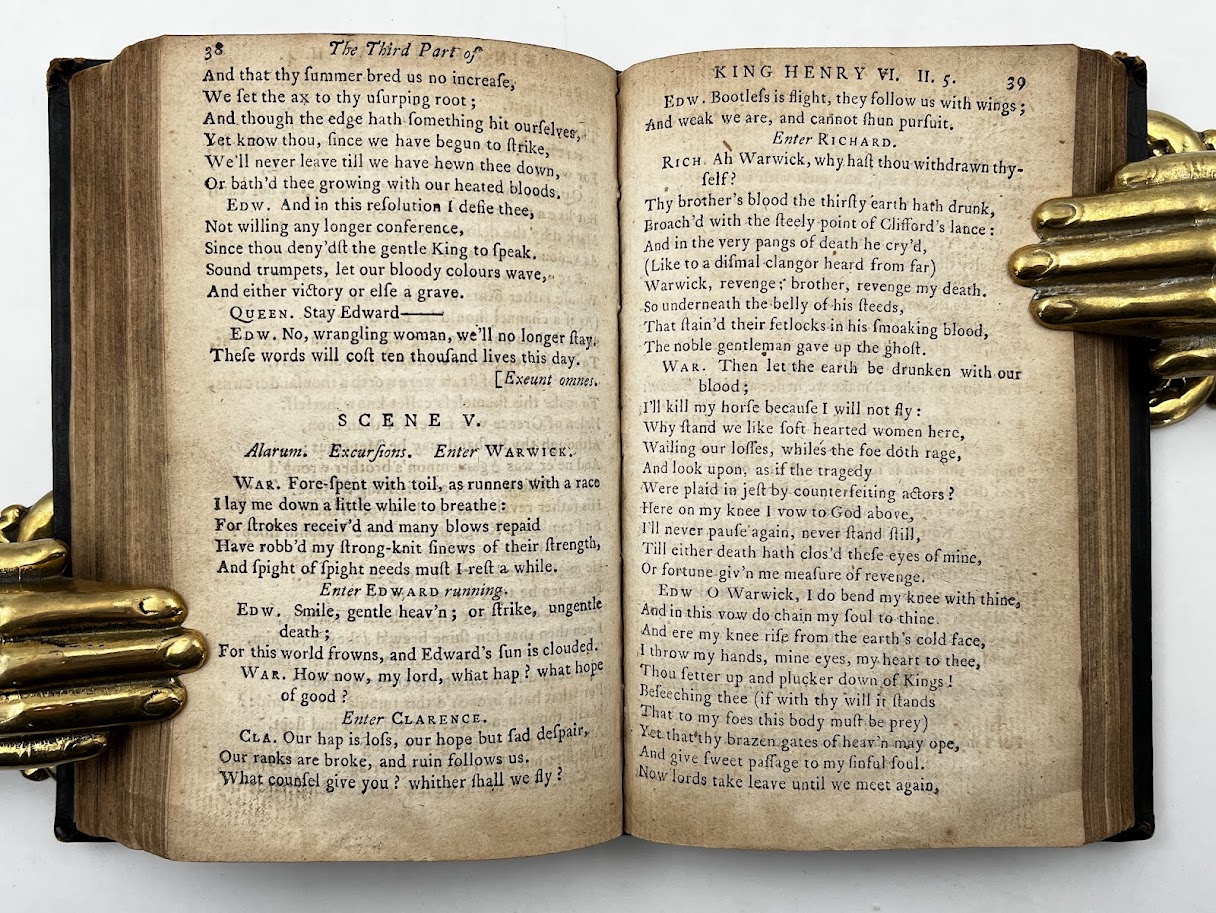 38 The Third Part of
And that thy ſummer bred us no increaſe,
We ſet the ax to thy uſurping root;
And though the edge hath ſomething hit ourſelves,
Yet know thou, ſince we have begun to ſtrike,
We'll never leave till we have hewn thee down,
Or bath'd thee growing with our heated bloods.
EDW. And in this reſolution I defie thee,
Not willing any longer conference,
Since thou deny'dſt the gentle King to ſpeak.
Sound trumpets, let our bloody colours wave,
And either victory or elſe a grave.
QUEEN. Stay Edward——
EDW. No, wrangling woman, we'll no longer ſtay.
Theſe words will coſt ten thouſand lives this day.
[Exeunt omnes.
SCENE V.
Alarum. Excurſions. Enter WARWICK.
WAR. Fore-ſpent with toil, as runners with a race
I lay me down a little while to breathe:
For ſtrokes receiv'd and many blows repaid
Have robb'd my ſtrong-knit ſinews of their ſtrength,
And ſpight of ſpight needs muſt I reſt a while.
Enter EDWARD running.
EDW. Smile, gentle heav'n; or ſtrike, ungentle
death;
For this world frowns, and Edward's ſun is clouded.
WAR. How now, my lord, what hap? what hope
of good?
Enter CLARENCE.
CLA. Our hap is loſs, our hope but ſad deſpair,
Our ranks are broke, and ruin follows us.
What counſel give you? whither ſhall we fly?
KING HENRY VI. II. 5. 39
EDW. Bootleſs is flight, they follow us with wings;
And weak we are, and cannot ſhun purſuit.
Enter RICHARD.
RICH. Ah Warwick, why haſt thou withdrawn thy-
ſelf?
Thy brother's blood the thirſty earth hath drunk,
Broach'd with the ſteely point of Clifford's lance:
And in the very pangs of death he cry'd,
(Like to a diſmal clangor heard from far)
Warwick, revenge; brother, revenge my death.
So underneath the belly of his ſteeds,
That ſtain'd their fetlocks in his ſmoaking blood,
The noble gentleman gave up the ghoſt.
WAR. Then let the earth be drunken with our
blood;
I'll kill my horſe becauſe I will not fly:
Why ſtand we like ſoft hearted women here,
Wailing our loſſes, whiles the foe doth rage,
And look upon, as if the tragedy
Were plaid in jeſt by counterfeiting actors?
Here on my knee I vow to God above,
I'll never pauſe again, never ſtand ſtill,
Till either death hath clos'd theſe eyes of mine,
Or fortune giv'n me meaſure of revenge.
EDW O Warwick, I do bend my knee with thine,
And in this vow do chain my ſoul to thine.
And ere my knee riſe from the earth's cold face,
I throw my hands, mine eyes, my heart to thee,
Thou ſetter up and plucker down of Kings!
Beſeeching thee (if with thy will it ſtands
That to my foes this body muſt be prey)
Yet that thy brazen gates of heav'n may ope,
And give ſweet paſſage to my ſinful ſoul.
Now lords take leave until we meet again,